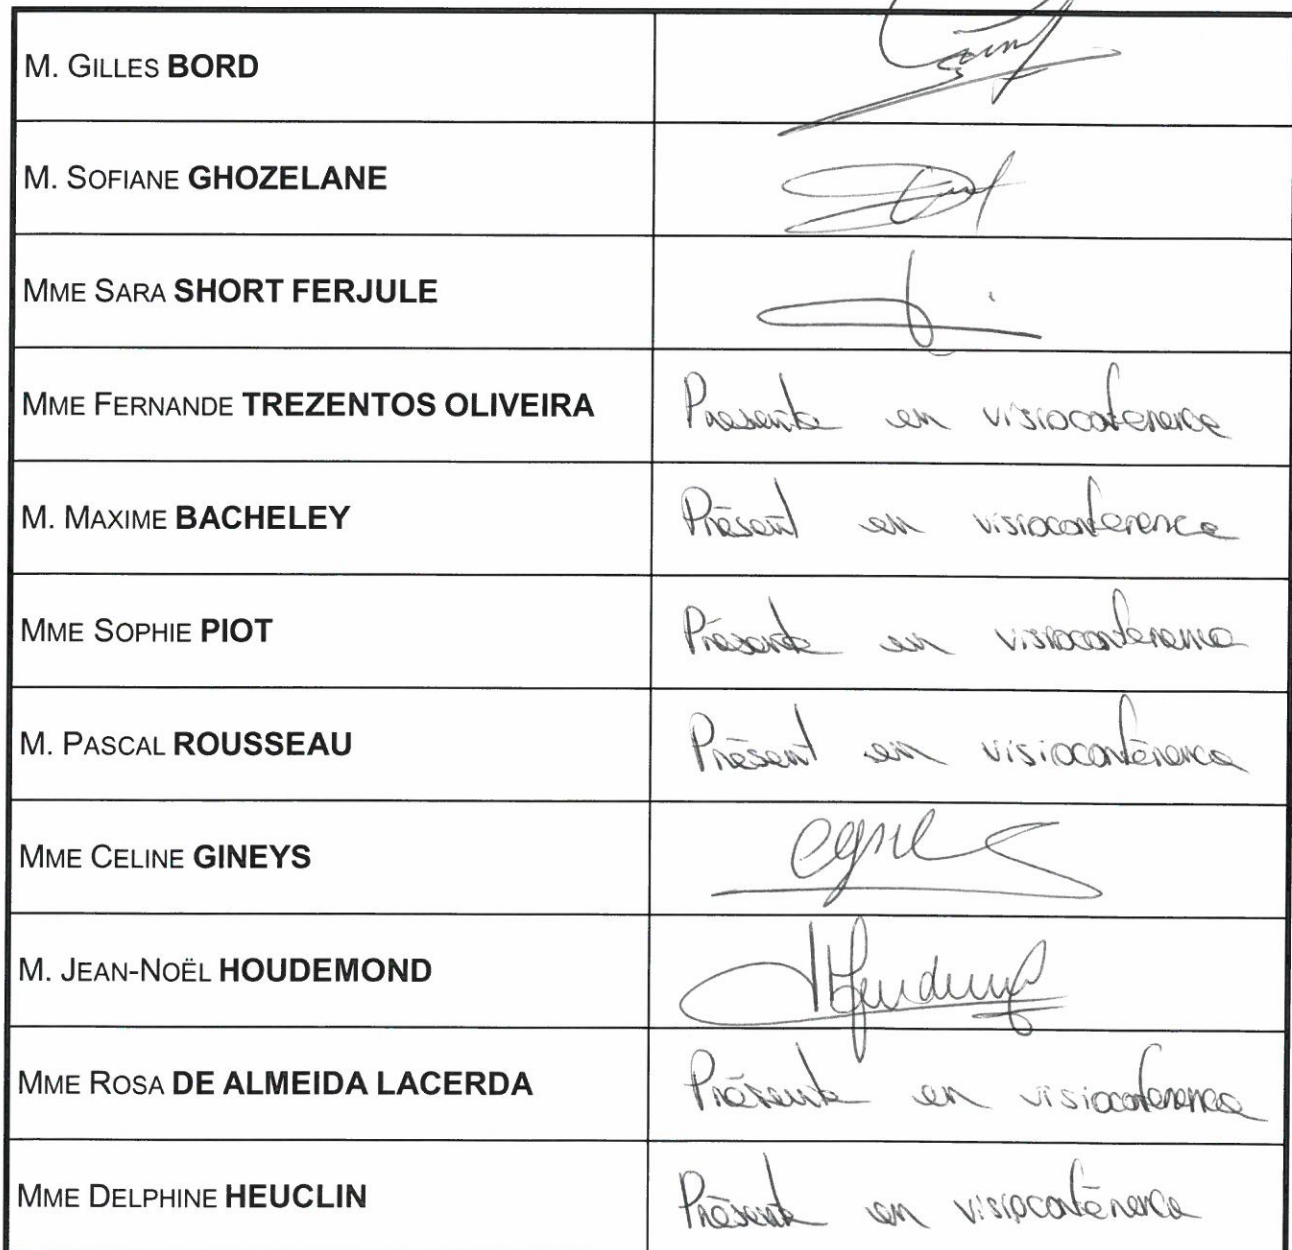 M. GILLES BORD
M. SOFIANE GHOZELANE
MME SARA SHORT FERJULE
MME FERNANDE TREZENTOS OLIVEIRA Présente en visioconference
M. MAXIME BACHELEY Présent en visioconference
MME SOPHIE PIOT Présente en visioconference
M. PASCAL ROUSSEAU Présent en visioconférence
MME CELINE GINEYS
M. JEAN-NOËL HOUDEMOND
MME ROSA DE ALMEIDA LACERDA Présente en visioconference
MME DELPHINE HEUCLIN Présente en visioconférence